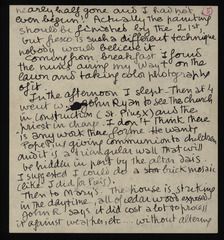 nearly half gone and I had not
even begun. Actually the painting
should be finished by the 21st
but fresco is such a different technique
nobody would believe it.
Coming from breakfast I found
the nuns doing my play (?) on the
lawn and taking color photographs
of it
In the afternoon I slept. Then at 4
out to John Ryan to see the church
in construction (St Pius X) and the
priest in charge. I don't think there
is any work there for me. He wants
Pope Pius giving communion to children
and it is a triangular wall that will
be hidden in part by the altar. Says
I suggested I could do a stone brick mosaic
(like I did for this).
Then to Mary's. The house is striking
in the daytime, all of cedar wood exposed
John R. says it did cost a lot to process
it against weather etc. without altering